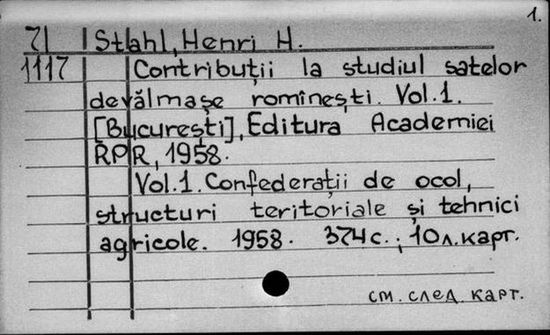 1.
71 Stahl, Henri H.
1117 Contribuții la studiul satelor
devălmașe romînești. Vol. 1.
[București], Editura Academiei
RPR, 1958.
Vol. 1. Confederații de ocol,
structuri teritoriale și tehnici
agricole. 1958. 374 с.; 10 л. карт.
см. след. карт.